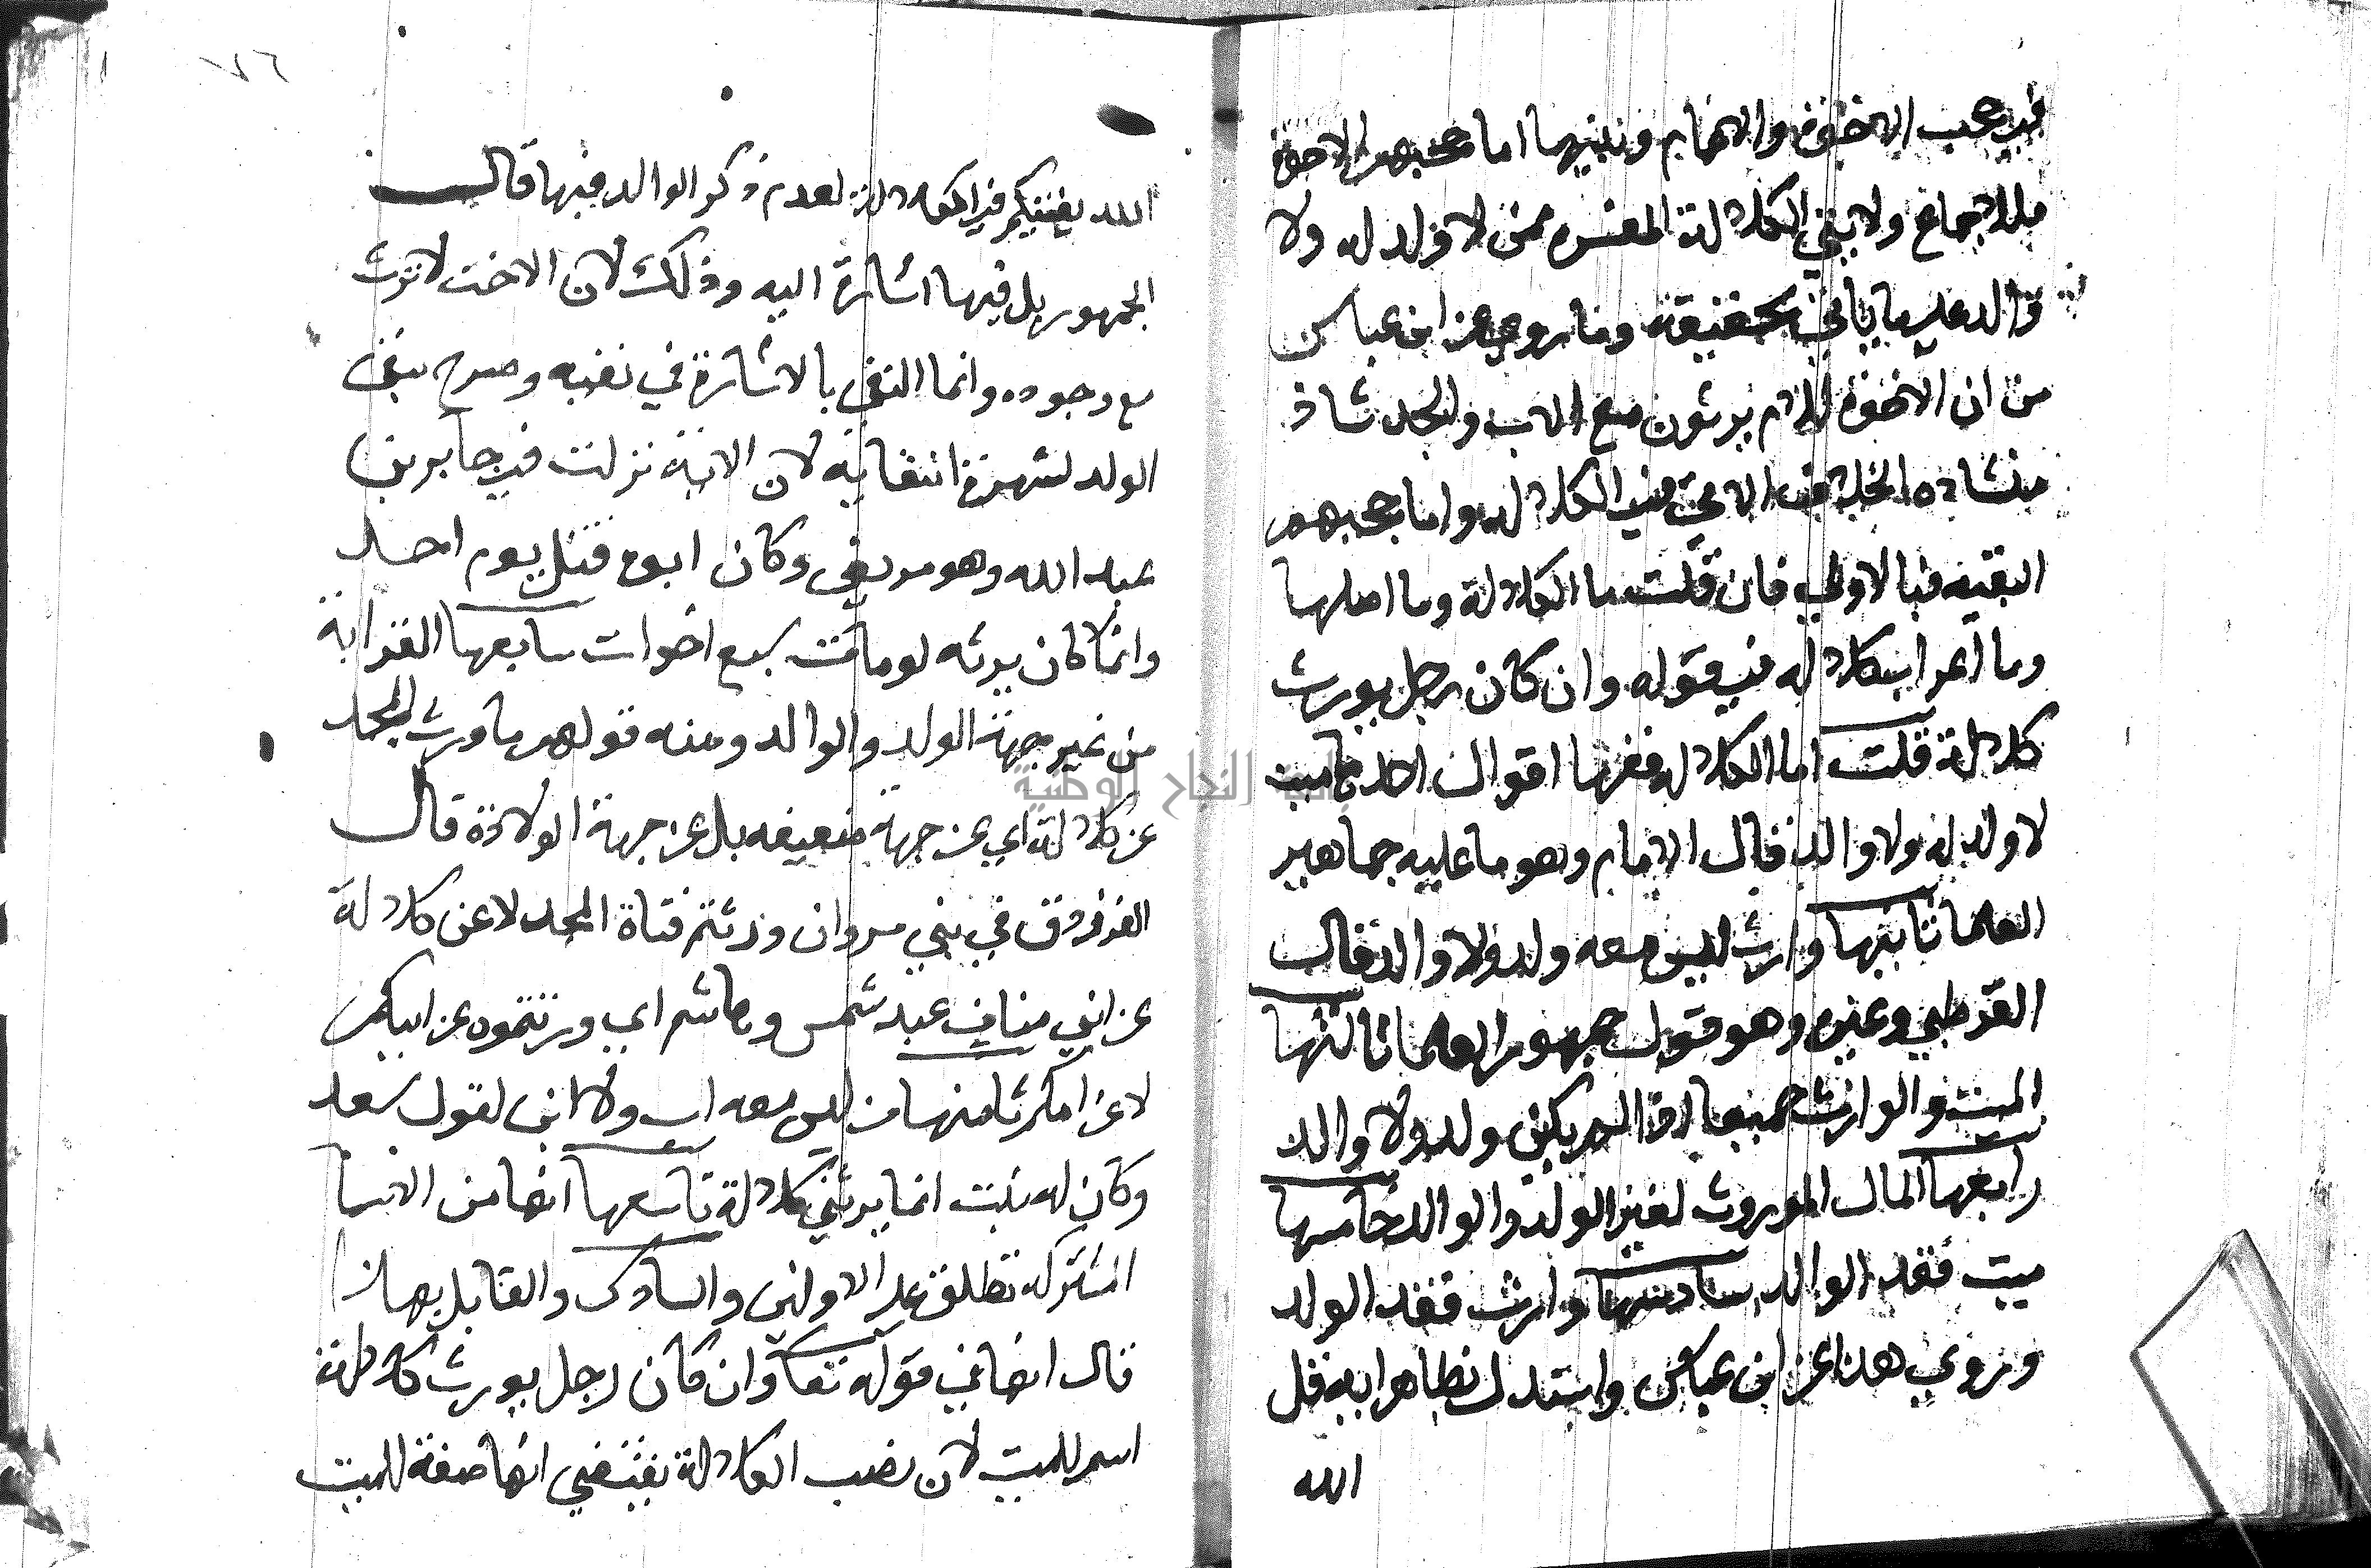 فيحجب الاخوة والاعمام وبنيهما اما حجبهم الاخوة
فللاجماع ولاية الكلالة المفسره بمن لا ولد له ولا
والد علي ما ياتي تحقيقه وما روي عن ابن عباس
من ان الاخوة للام يرثون مع الاب والجد شاذ
الخلاف الاتي في الكلاله واما حجبهم
البقيه فبالاولي فان قلت ما الكلالة وما اصلها
وما اعراب كلاله في قوله وان كان رجل يورث
كلالة قلت اما الكلاله ففيها اقوال احدها ميت
لا ولد له ولا والد قال الامام وهو ما عليه جماهير
العلما ثانيها وارث ليس معه ولد ولا والد قال
القرطبي وغيره وهو قول جمهور العلما ثالثها
الميت والوارث جميعا اذا لم يكن ولد ولا والد
رابعها المال الموروث لغير الولد والوالد خامسها
ميت فقد الوالد سادسها وارث فقد الولد
وروي هذا عن ابن عباس واستدل بظاهر ايه قل
الله
١٧٦
الله يفتيكم في الكلالة لعدم ذكر الوالد فيها قال
الجمهور بل فيها اشارة اليه وذلك لان الاخت لا ترث
مع وجوده وانما اكتفي بالاشارة في نفيه وصرح بنفي
الولد لشهرة انتفايه لان الاية نزلت في جابر بن
عبد الله وهو مريض وكان ابوه قتل يوم احد
وانما كان يرثه لو مات سبع اخوات سابعها القرابة
من غير جهة الولد والوالد ومنه قولهم ما ورث المجد
عن كلالة اي عن جهة ضعيفه بل عن جهة الولادة قال
الفرزدق في بني مروان ورثتم قناة المجد لا عن كلالة
عن ابني مناف عبد شمس وهاشم اي ورثتموه عن ابيكم
لا عن امكم ثامنها من ليس معه اب ولا ابن لقول سعد
وكان له بنت انما يرثني كلالة تاسعها انها من الاسما
المشتركه تطلق علي الاولين والسادس والقايل بهذا
قال انها في قوله تعالي وان كان رجل يورث كلالة
اسم للميت لان نصب الكلالة يقتضي انها صفة للميت
جامعة النجاح الوطنية